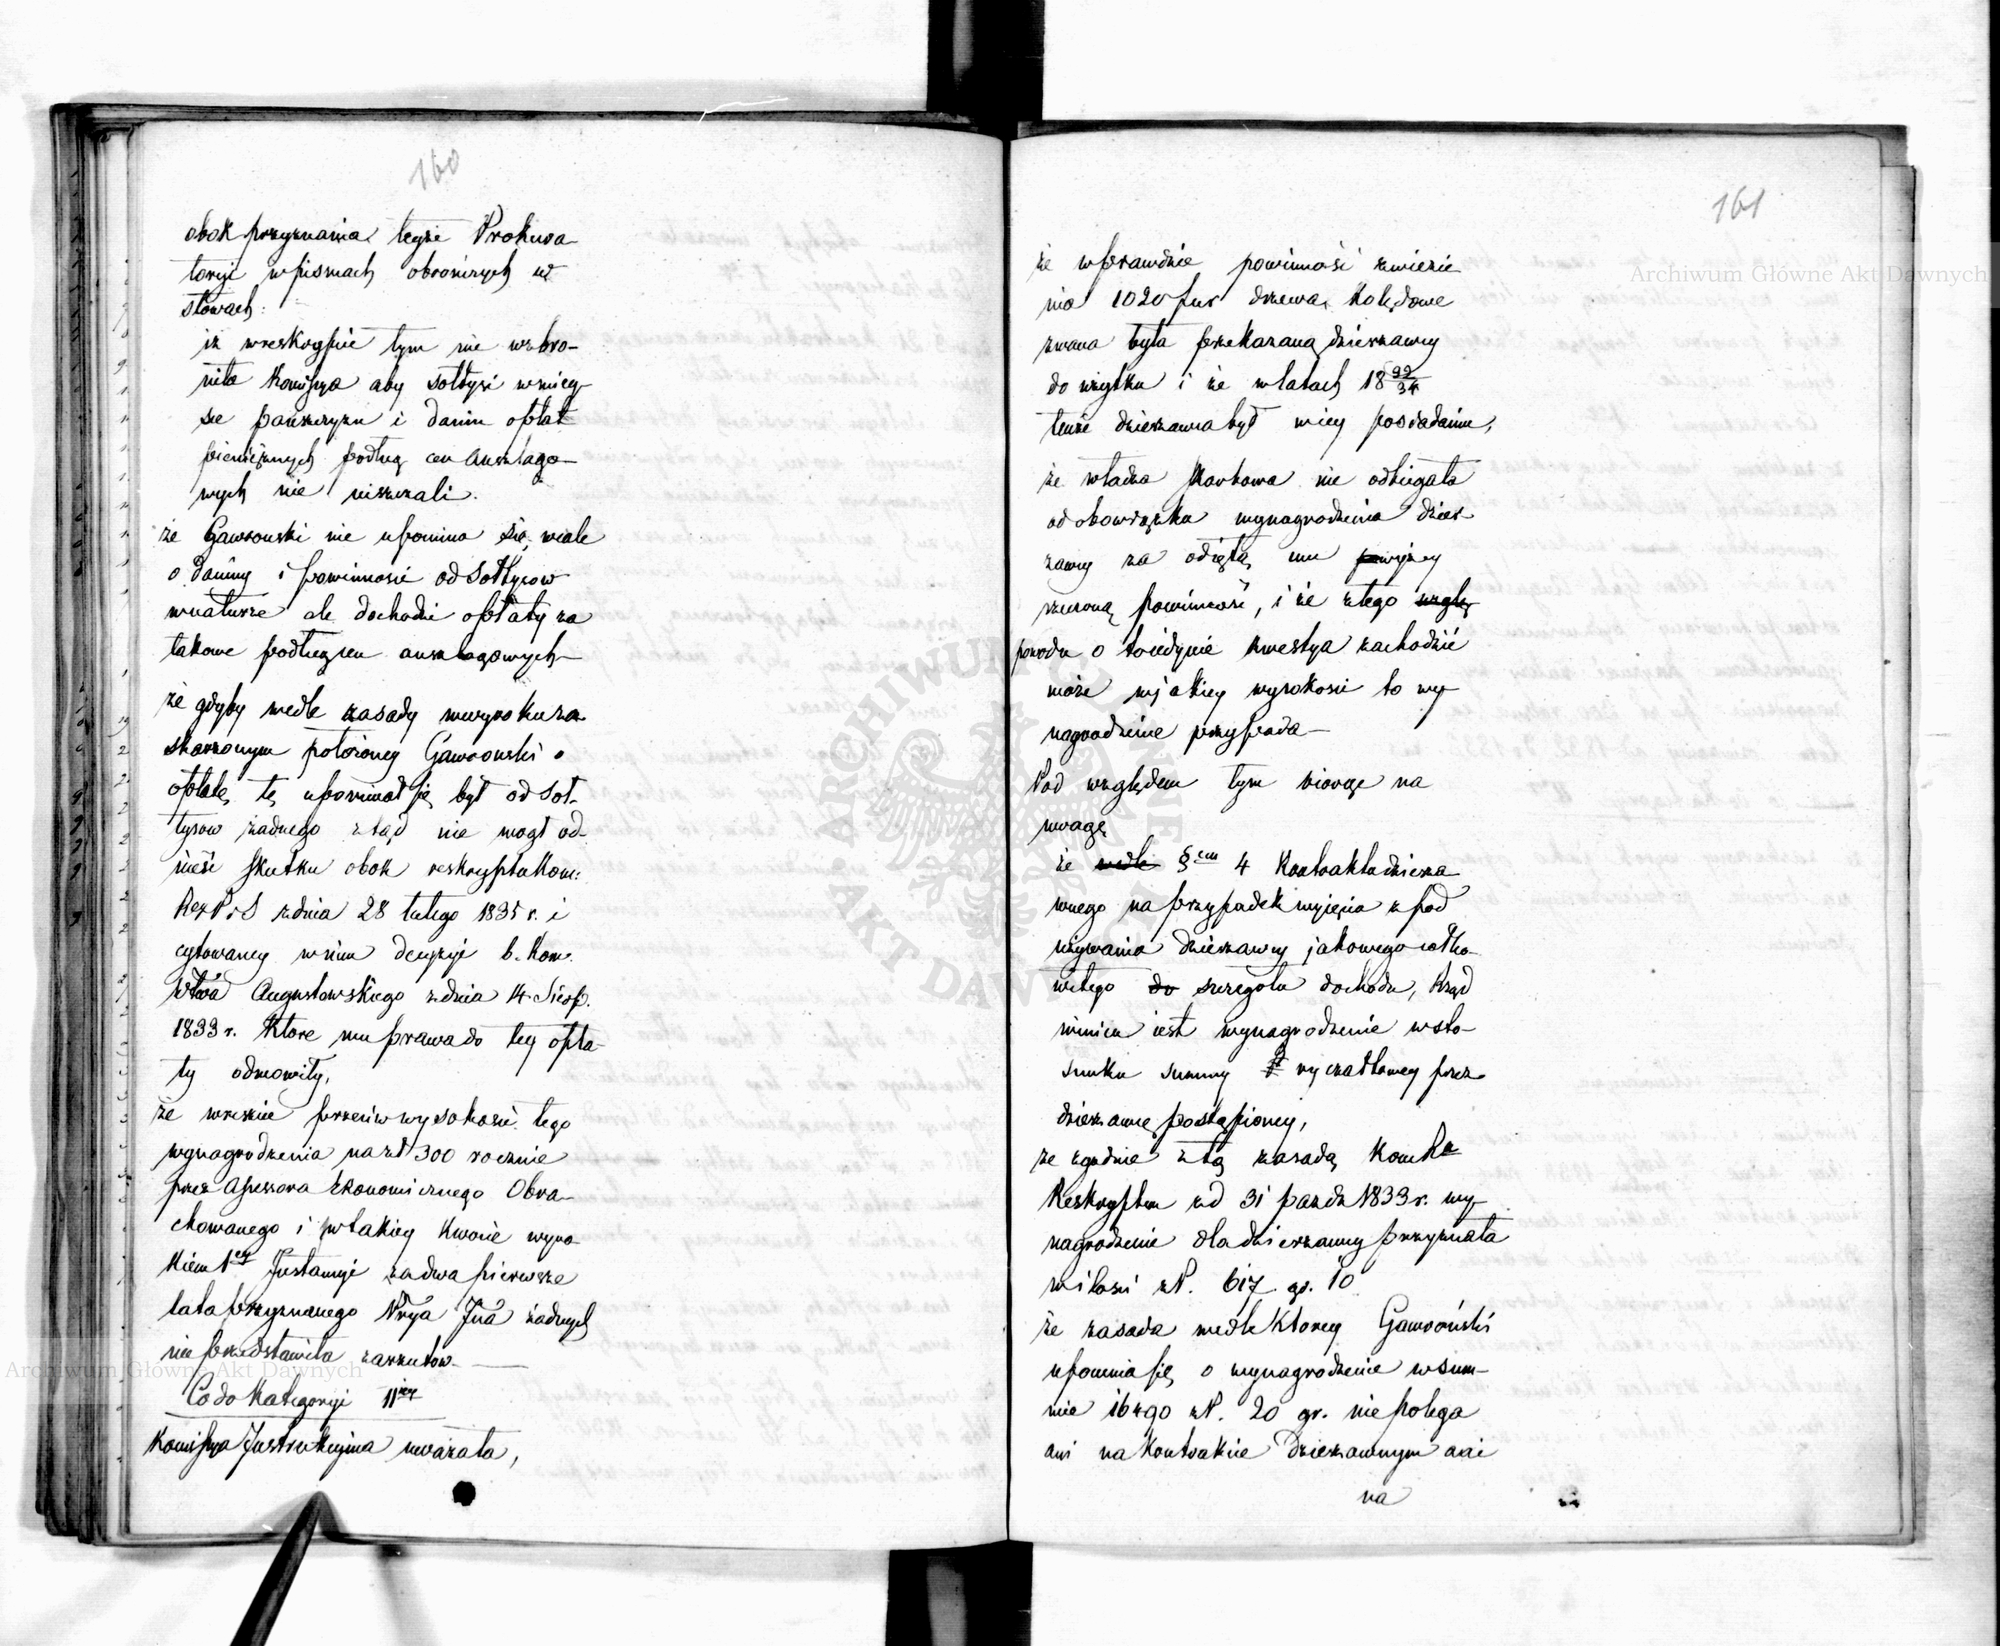 160
obok przyznania tegże Prokura-
toryi w pismach obrończych w
słowach:
iż w reskrypcie tym nie wzbro-
niła Kommissya aby sołtysi w miey-
sce pańszczyzn i danin opłat
pieniężnych podług cen anszlago-
wych nie uiszczali.
że Gawroński nie upomina się wcale
o daniny i powinności od Sołtysow
w naturze ale dochodzi opłaty za
takowe podług cen anszlagowych
że gdyby wedle zasady w wyroku za-
skarzonym położoney Gawroński o
opłatę tę upominał się był od Soł-
tysow żadnego ztąd nie mogł od-
nieść skutku obok reskryptu Kom:
RzP.iS z dnia 28 lutego 1835 r. i
cytowaney w nim decyzyi b. Kom:
Wtwa Augustowskiego z dnia 14 Sierp.
1833 r. Ktore mu prawa do tey opła-
ty odmowiły,
że wreszcie przeciw wysokości tego
wynagrodzenia na zł 300 rocznie
przez Assessora Ekonomicznego Obra-
chowanego i w takiey kwocie wyro-
kiem 1ey Instancyi za dwa pierwsze
lata przyznanego Prya Jna żadnych
nie przedstawiła zarzutow.
Co do Kategoryi IIiey
Kommissya Instrukcyina uważała,
161
że wprawdzie powinność zwiezie-
nia 1020 fur drzewa Kolędowe
zwana była przekazaną dzierzawcy
do użytku i że w latach 18 33/34
tenże dzierzawca był w iey posiadaniu,
że władza Skarbowa nie odbiegała
od obowiązku wynagrodzenia dzier-
zawcy za odiętą mu powyżey
rzeczoną powinność, i że z tego wzglę
powodu o to iedynie kwestya zachodzić
może w jakiey wysokości to wy-
nagrodzenie przypada
Pod względem tym biorąc na
uwagę
że wedle §em 4 Kontraktu dzierza-
wnego na przypadek wyięcia z pod
używania dzierzawcy jakowego całko-
witego do szczegołu dochodu, Rząd
winien iest wynagrodzenie w sto-
sunku summy ryczałtowey przez
dzierzawcę postąpioney,
że zgodnie z tą zasadą Kom Rz
Reskryptem z d 31 Pazdz 1833 r. wy-
nagrodzenie dla dzierzawcy przyznała
w ilości zł. 617 gr. 10
że zasada wedle Ktorey Gawroński
upomina się o wynagrodzenie w sum-
mie zł. 20 gr. nie polega
ani na Kontrakcie Dzierzawnym ani
na
Archiwum Główne Akt Dawnych
Archiwum Główne Akt Dawnych
ARCHIWUM GŁÓWNE AKT DAWNYCH